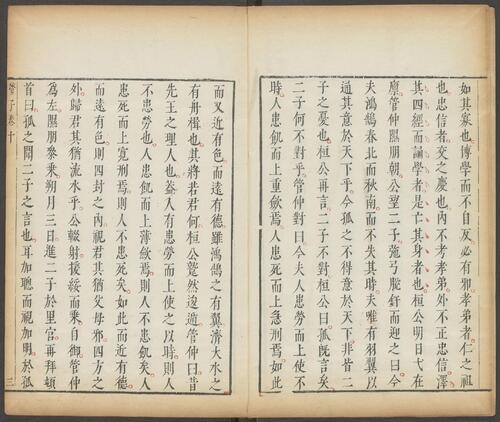 如其寡也博學而不自反必有邪孝弟者仁之祖
也忠信者交之慶也內不考孝弟外不正忠信澤
其四經而誦學者是亡其身者也桓公明日弋在
廩管仲隰朋朝公望二子弛弓脫釬而迎之曰今
夫鴻鵠春北而秋南而不失其時夫唯有羽翼以
通其意於天下乎今孤之不得意於天下非皆二
子之憂也桓公再言二子不對桓公曰孤既言矣
二子何不對乎管仲對曰今夫人患勞而上使不
時人患飢而上重歛焉人患死而上急刑焉如此
而又近有色而遠有德雖鴻鵠之有翼濟大水之
有舟楫也其將若君何桓公蹵然逡遁管仲曰昔
先王之理人也蓋人有患勞而上使之以時則人
不患勞也人患飢而上薄歛焉則人不患飢矣人
患死而上寬刑焉則人不患死矣如此而近有德
而遠有色則四封之內視君其猶父母邪四方之
外歸君其猶流水乎公輟射援綏而乘自御管仲
為左隰朋參乘朔月三日進二子於里官再拜頓
首曰孤之聞二子之言也耳加聰而視加明於孤
管子卷十
三